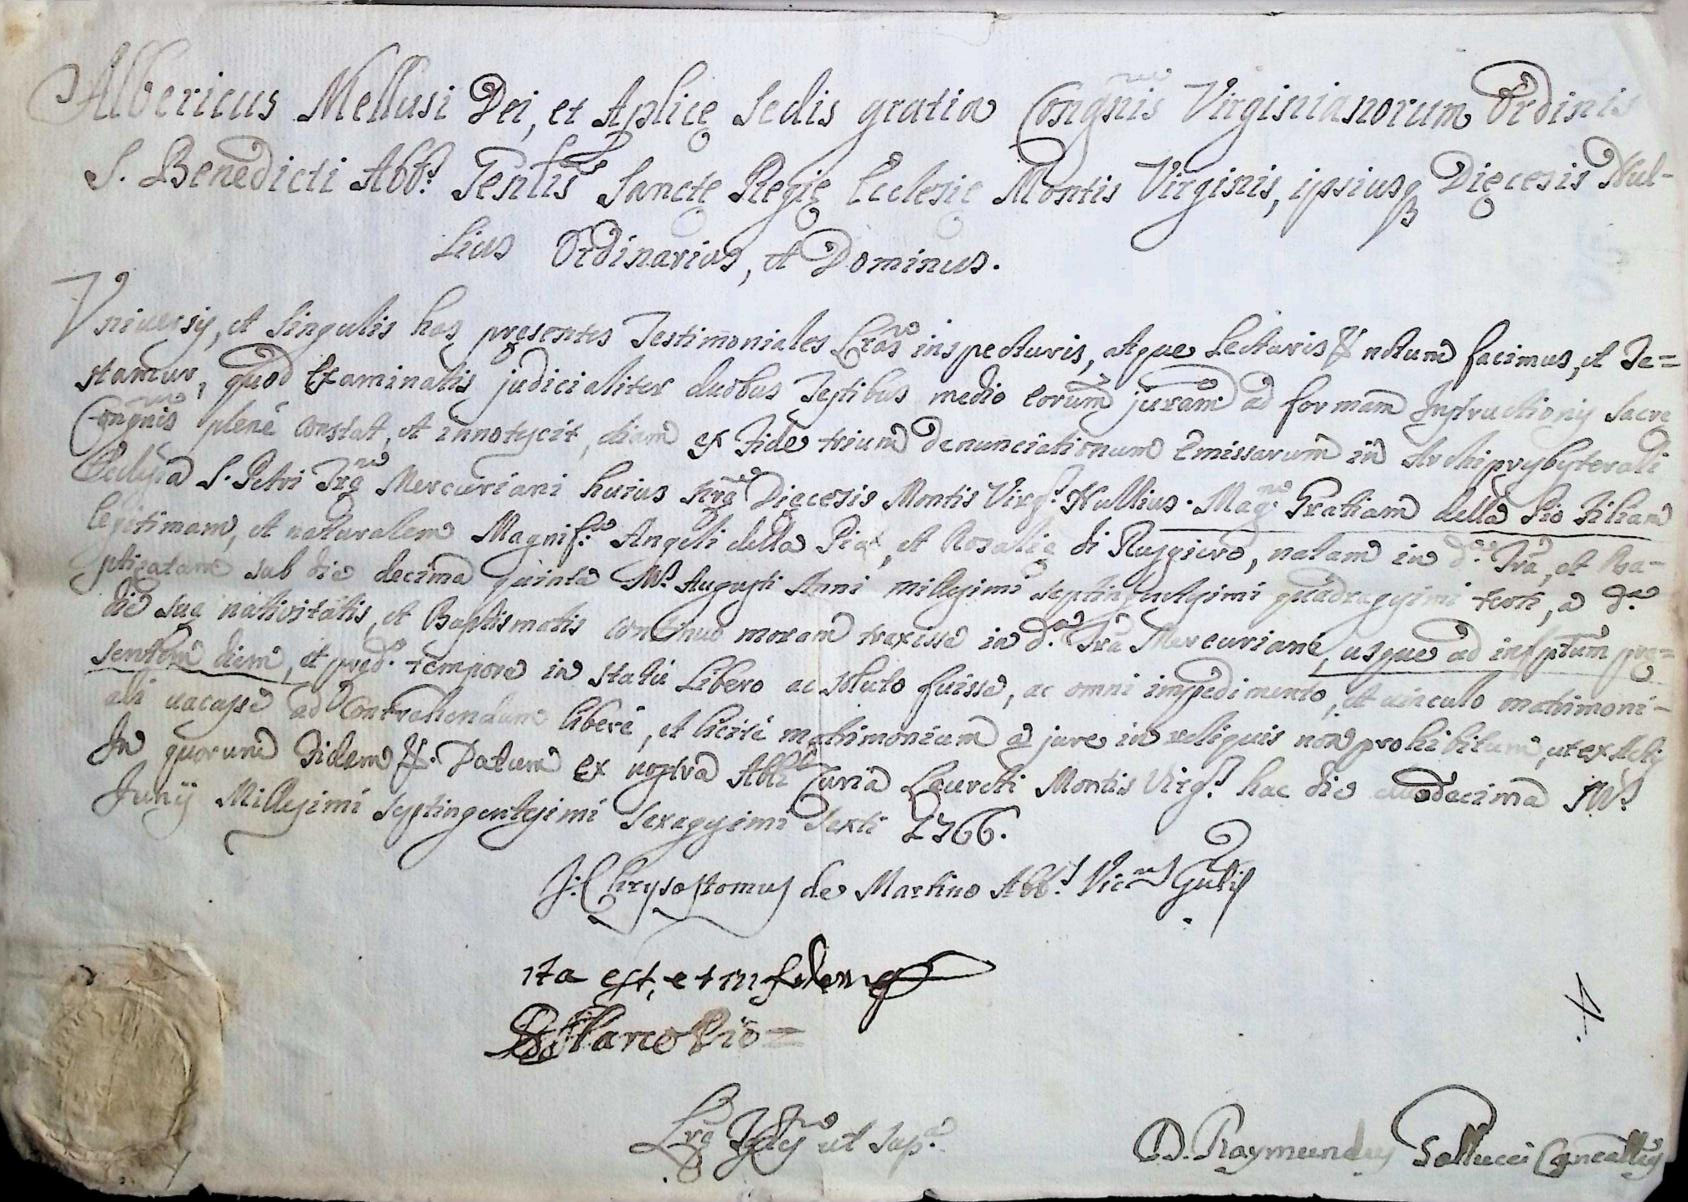 Albericus Mellusi Dei, et Aplicę Sedis gratia Congñis Virginianorum Ordinis
S. Benedicti Abb.s Gen̄lis Sanctę Regię Ecclesię Montis Virginis, ipsiusq Dięcesis Nul-
lius Ordinarius, et Dominus.
Universis, et singulis has pręsentes Testimoniales Lr̄as inspecturis, atque Lecturis &́ notum facimus, et Te=
stamur, quod Examinatis judicialiter duobus Testibus medio eorum juram.to ad formam Instructionis Sacrę
Congñis plenè constat, et innotescit, etiam ex Fide trium denunciationum emissarum in Archipresbyterali
Ecclesia S. Petri Tr̄ę Mercuriani huius nr̄ę Dięcesis Montis Virg.s Nullius. Mag.cam Gratiam della Pio Filiam
legitimam, et naturalem Magnif.ci Angeli della Pia, et Rosalię di Ruggiero, natam in d.a Tr̄a, et Ba-
ptizatam sub die decima quinta M.s Augusti Anni millesimi septingentesimi quadragesimi terti, a d.a
die suę nativitatis, et Baptismatis continuò moram traxisse in d.a Tr̄a Mercuriani, usque ad infrptum prę=
sentem diem, et pręd.o tempore in statu Libero ac soluto fuisse, ac omni impedimento, et vinculo matrimoni-
ali vacasse ad Contrahendum liberè, et licitè matrimonium a jure in reliquis non prohibitum, ut ex Actis
In quorum Fidem &. Datum ex nostra Abbli Curia Laureti Montis Virg.s hac die duodecima M.s
Junij Millesimi Septingentesimi Sexagesimi Sexti 1766.
J: Chrysostomus de Martino Abb.s Vic.us Gn̄lis
ita est, et in fidem
Marco Pio =
4.
Lr̄ę Tgles ut sup.a
D. Raymundus Gallucci Cancell.us